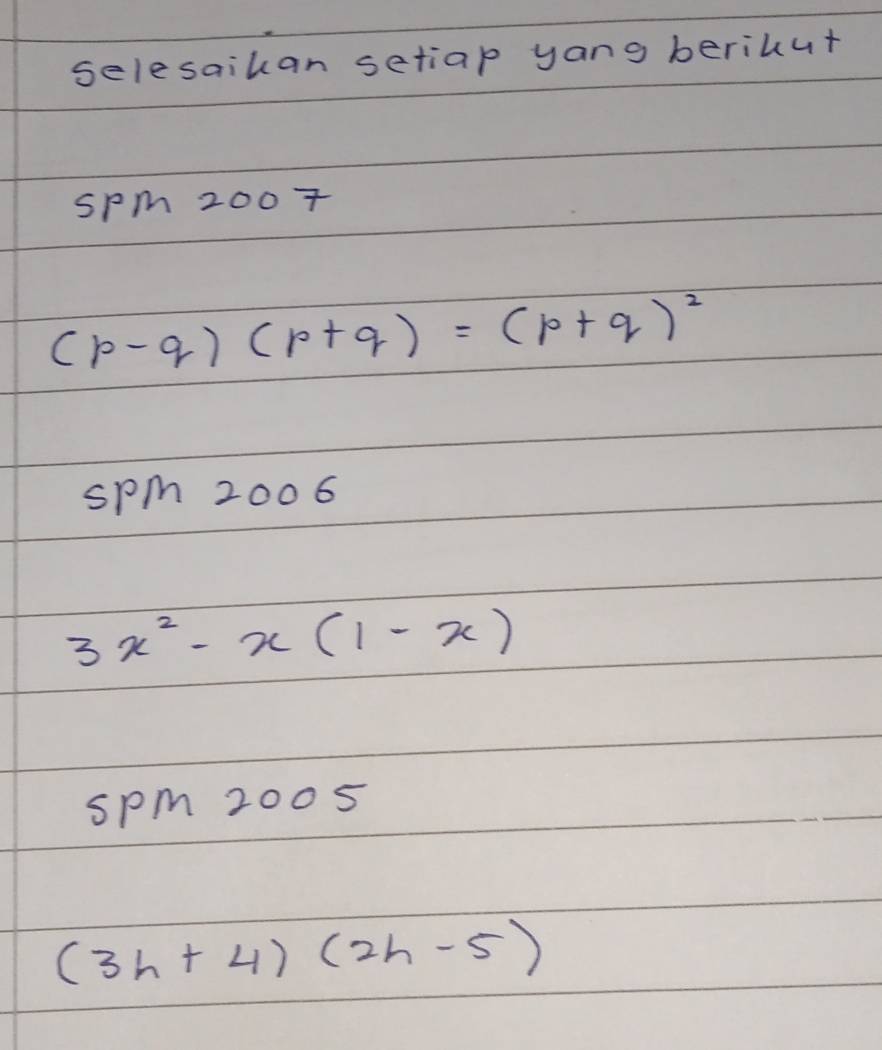 selesaikan setiap yang berikut
SPM 2007
(p-q) (p+q) = (p+q)²
SPM 2006
3x² - x (1 - x)
SPM 2005
(3h + 4) (2h - 5)